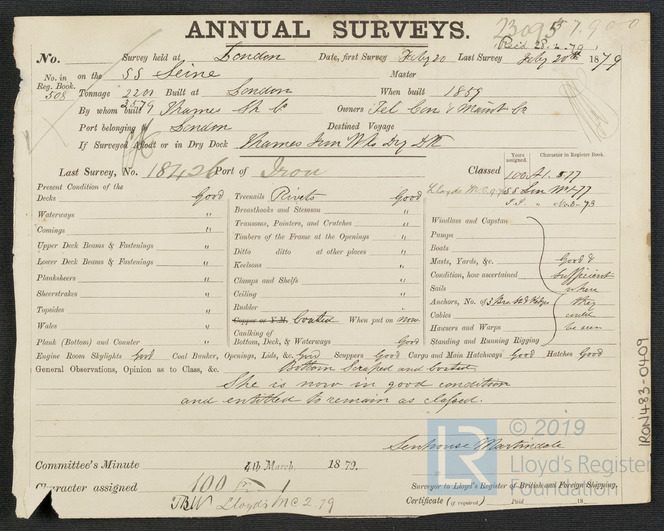 ANNUAL SURVEYS.
No. Survey held at London Date, first Survey Feby 20 Last Survey Feby 20th 1879
Recd 28.2.79
No. in Reg. Book. 508 on the SS Seine Master
Tonnage 2201 Built at London When built 1859
2579
By whom built Thames Sh Co Owners Tel Con & Maint Co
Port belonging to London Destined Voyage
If Surveyed Afloat or in Dry Dock Thames Iron Wks Dry Dk
Years assigned. Character in Register Book.
Last Survey, No. 18426 Port of Iron Classed 100 A1. 8 77
Lloyds M.C. SS Lon
Present Condition of the
Decks Good Treenails Rivets Good
Waterways " Breasthooks and Stemson " Windlass and Capstan
Comings " Transoms, Pointers, and Crutches " Pumps
Timbers of the Frame at the Openings " Boats
Upper Deck Beams & Fastenings " Ditto ditto at other places " Masts, Yards, &c. Good &
Lower Deck Beams & Fastenings " Keelsons " Condition, how ascertained sufficient
Planksheers " Clamps and Shelfs " Sails where
Sheerstrakes " Ceiling " Anchors, No. of they
Topsides " Rudder " Cables could
Wales " Copper or Y.M. Coated When put on now Hawsers and Warps be seen
Plank (Bottom) and Counter " Caulking of Bottom, Deck, & Waterways Good Standing and Running Rigging
Engine Room Skylights Good Coal Bunker, Openings, Lids, &c. Good Scuppers Good Cargo and Main Hatchways Good Hatches Good
General Observations, Opinion as to Class, &c. Bottom Scraped and Coated
She is now in good condition
and entitled to remain as classed.
Senhouse Martindale
Committee's Minute 4th March 1879.
Character assigned 100 A 1
Surveyor to Lloyd's Register of British and Foreign Shipping.
Certificate (if required) Paid 18
Lloyds MC 2.79
IRON483-0409
© 2019
Lloyd's Register
Foundation
LR